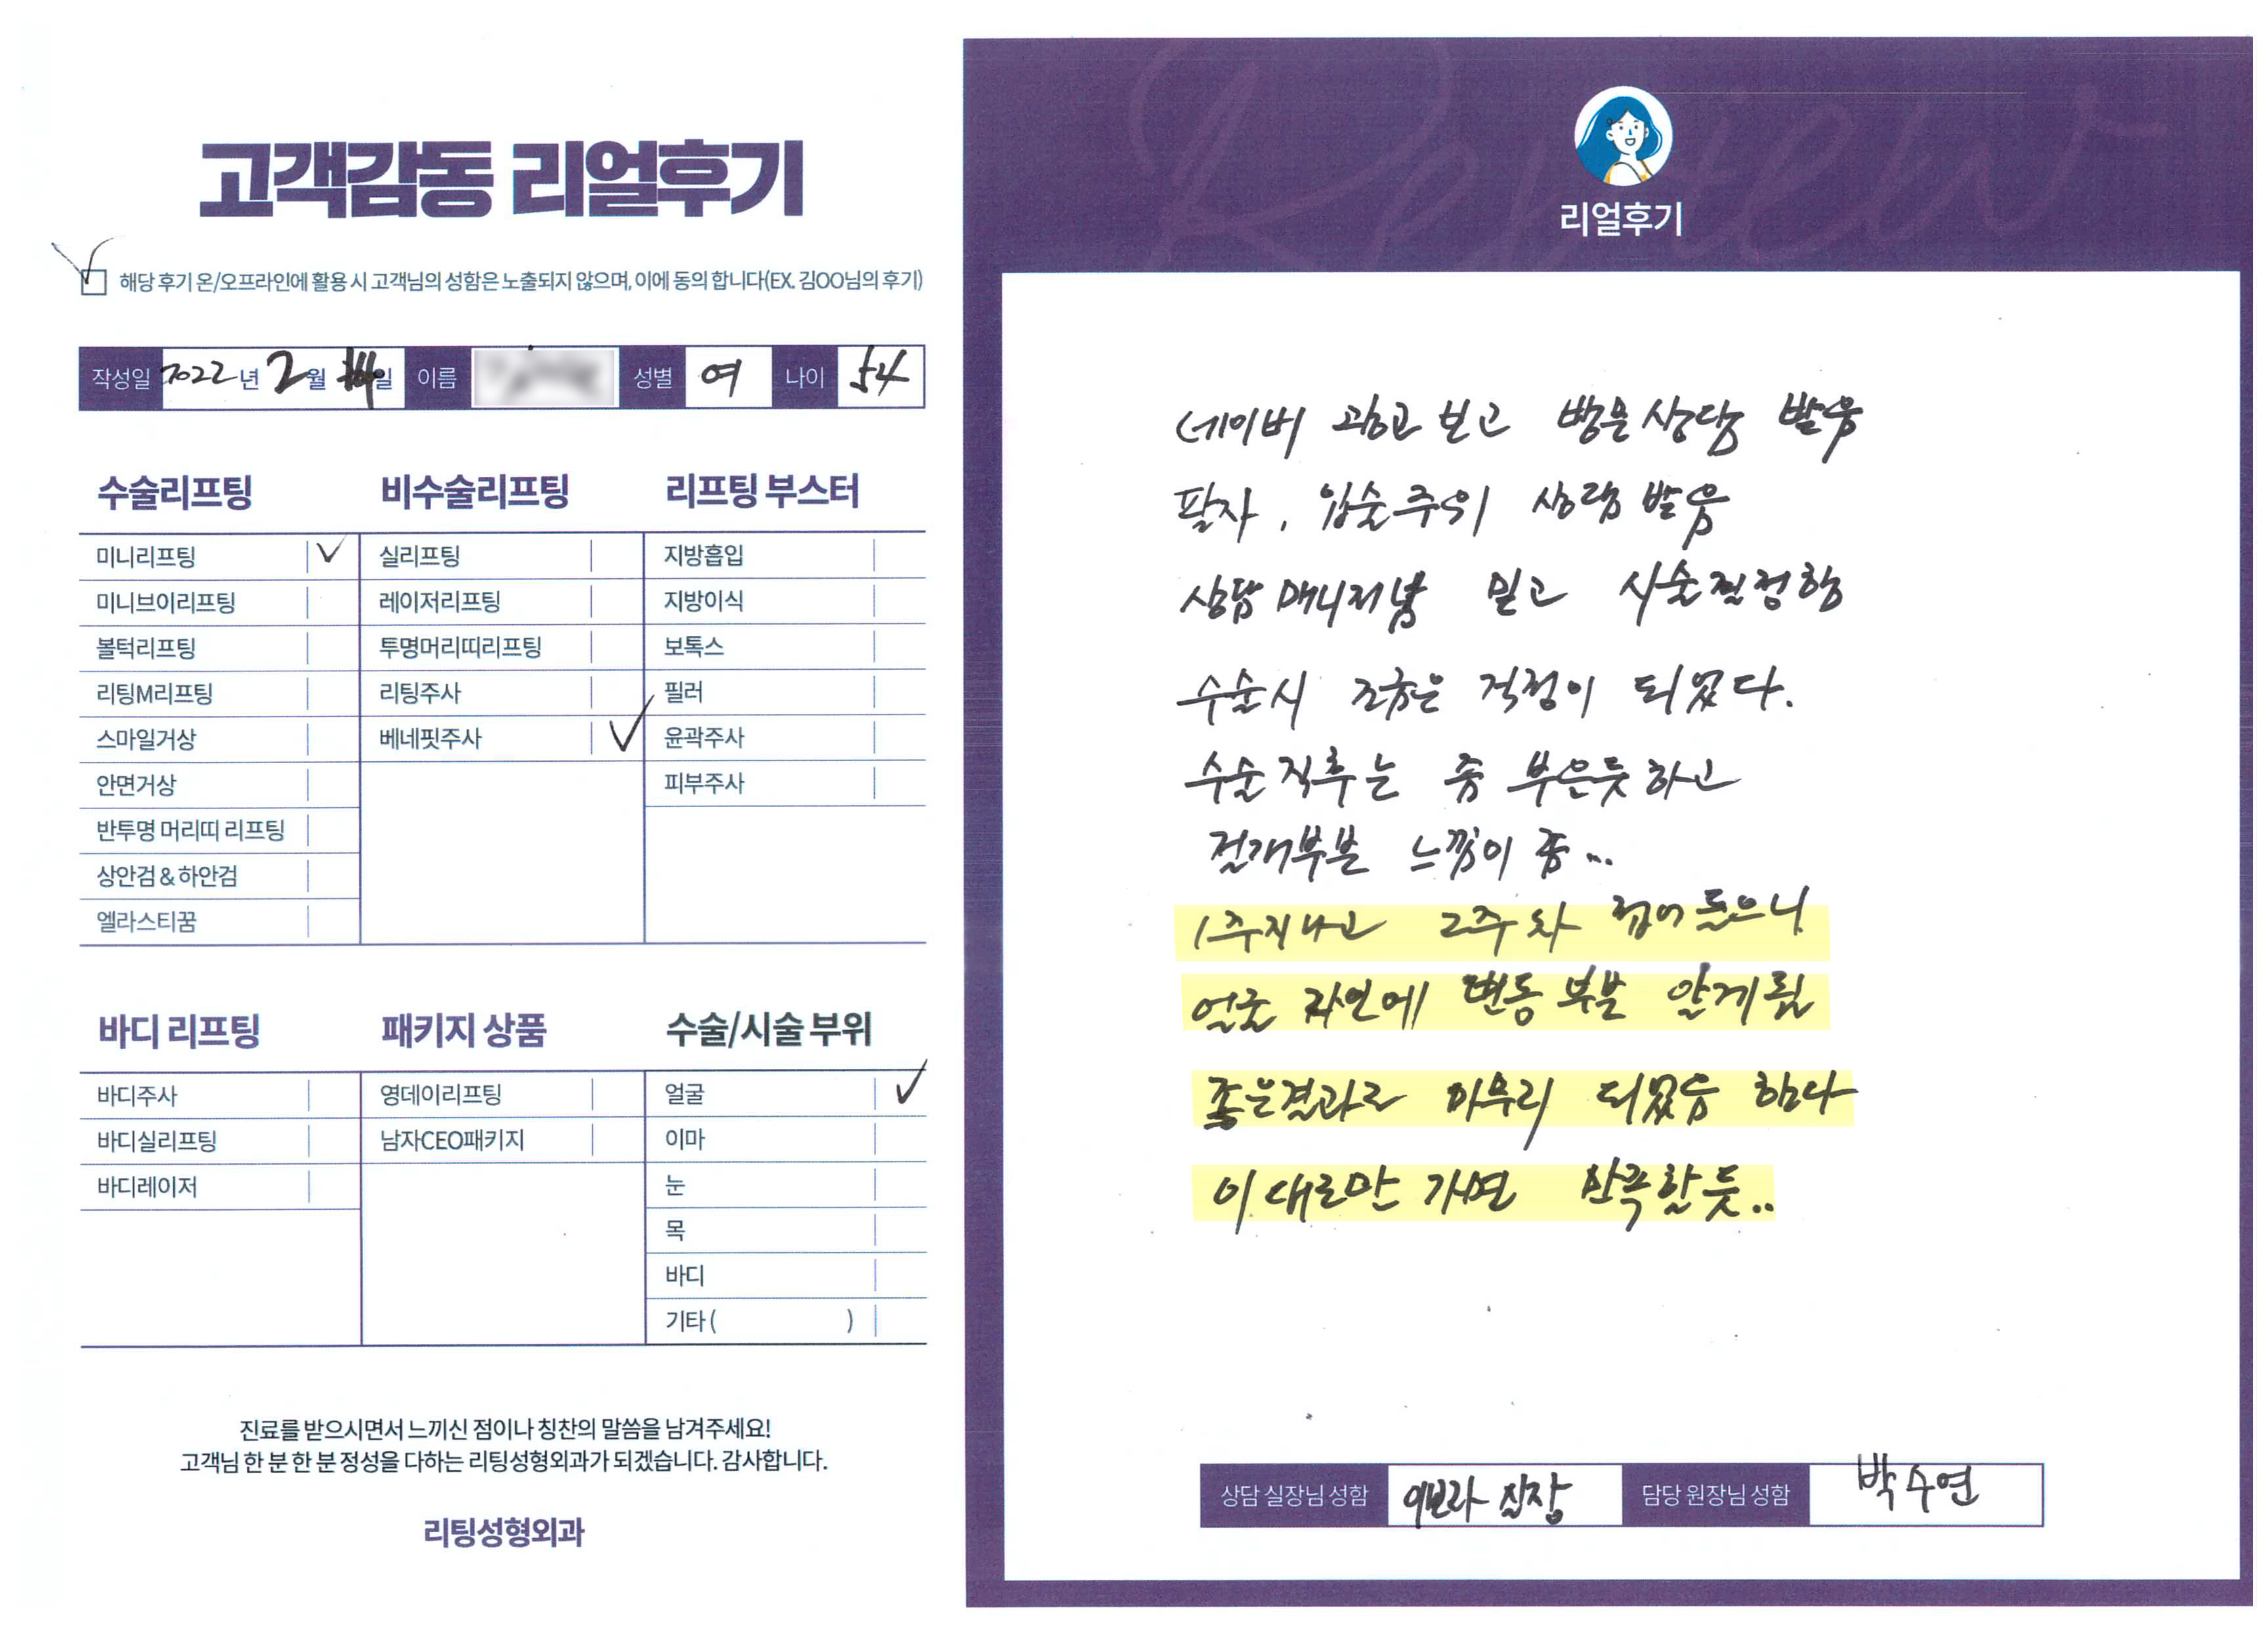 고객감동 리얼후기
해당 후기 온/오프라인에 활용 시 고객님의 성함은 노출되지 않으며, 이에 동의 합니다(EX. 김OO님의 후기)
작성일 2022년 2월 일 이름 성별 여 나이 54
수술리프팅
미니리프팅
미니브이리프팅
볼턱리프팅
리팅M리프팅
스마일거상
안면거상
반투명 머리띠 리프팅
상안검 & 하안검
엘라스티꿈
비수술리프팅
실리프팅
레이저리프팅
투명머리띠리프팅
리팅주사
베네핏주사
리프팅 부스터
지방흡입
지방이식
보톡스
필러
윤곽주사
피부주사
바디 리프팅
바디주사
바디실리프팅
바디레이저
패키지 상품
영데이리프팅
남자CEO패키지
수술/시술 부위
얼굴
이마
눈
목
바디
기타 ( )
진료를 받으시면서 느끼신 점이나 칭찬의 말씀을 남겨주세요!
고객님 한 분 한 분 정성을 다하는 리팅성형외과가 되겠습니다. 감사합니다.
리팅성형외과
Review
리얼후기
네이버 광고 보고 방문상담 받음
팔자, 입술주위 상담 받음
상담 매니저님 믿고 시술결정함
수술시 조금은 걱정이 되었다.
수술직후는 좀 부은듯하고
절개부분 느낌이 좀...
1주지나고 2주차 접어들으니
얼굴 라인에 변동 부분 알게됨
좋은결과로 마무리 되었음 합니다
이대로만 가면 만족할듯..
상담 실장님 성함 이보라 실장 담당 원장님 성함 박수연